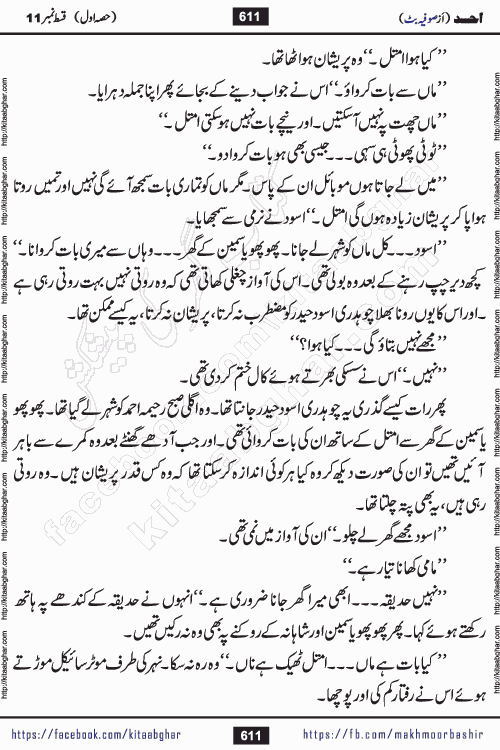 احد (از صوفیہ بٹ) 611 (حصہ اول) قسط نمبر 11
’’کیا ہوا امتل۔‘‘ وہ پریشان ہوا ٹھا تھا۔
’’ماں سے بات کرواؤ۔‘‘ اس نے جواب دینے کے بجائے پھر اپنا جملہ دہرایا۔
’’ماں چھت پہ نہیں آ سکتیں۔ اور نیچے بات نہیں ہو سکتی امتل۔‘‘
’’ٹوٹی پھوٹی ہی سہی۔۔۔ جیسی بھی ہو بات کروا دو۔‘‘
’’میں لے جاتا ہوں موبائل ان کے پاس۔ مگر ماں کو تمہاری بات سمجھ آئے گی نہیں اور تمہیں روتا
ہوا پا کر پریشان زیادہ ہوں گی امتل۔‘‘ اسود نے نرمی سے سمجھایا۔
’’اسود۔۔۔ کل ماں کو شہر لے جانا۔ پھوپھو یاسمین کے گھر۔۔۔ وہاں سے میری بات کروانا۔‘‘
کچھ دیر چپ رہنے کے بعد وہ بولی تھی۔ اس کی آواز چغلی کھاتی تھی کہ وہ روتی نہیں بہت روتی رہی ہے
۔ اور اس کا یوں رونا بھلا چوہدری اسود حیدر کو مضطرب نہ کرتا، پریشان نہ کرتا، یہ کیسے ممکن تھا۔
’’مجھے نہیں بتاؤ گی۔۔۔ کیا ہوا؟‘‘
’’نہیں۔‘‘ اس نے سسکی بھرتے ہوئے کال ختم کر دی تھی۔
پھر رات کیسے گذری یہ چوہدری اسود حیدر جانتا تھا۔ وہ اگلی صبح رحیمہ احمد کو شہر لے گیا تھا۔ پھوپھو
یاسمین کے گھر سے امتل کے ساتھ ان کی بات کروائی تھی۔ اور جب آدھے گھنٹے بعد وہ کمرے سے باہر
آئیں تھیں تو ان کی صورت دیکھ کر وہ کیا ہر کوئی اندازہ کر سکتا تھا کہ وہ کس قدر پریشان ہیں۔ وہ روتی
رہی ہیں، یہ بھی پتہ چلتا تھا۔
’’اسود مجھے گھر لے چلو۔‘‘ ان کی آواز میں نمی تھی۔
’’مامی کھانا تیار ہے۔‘‘
’’نہیں حدیقہ۔۔۔ ابھی میرا گھر جانا ضروری ہے۔‘‘ انہوں نے حدیقہ کے کندھے پہ ہاتھ
رکھتے ہوئے کہا۔ پھر پھوپھو یاسمین اور شاہانہ کے روکنے پہ بھی وہ نہ رکیں تھیں۔
’’کیا بات ہے ماں۔۔۔ امتل ٹھیک ہے ناں۔‘‘ وہ رہ نہ سکا۔ نہر کی طرف موٹر سائیکل موڑتے
ہوئے اس نے رفتار کم کی اور پوچھا۔
https://facebook.com/kitaabghar 611 https://fb.com/makhmoorbashir
http://kitaabghar.com
kitaabghar.com
facebook.com/kitaabghar